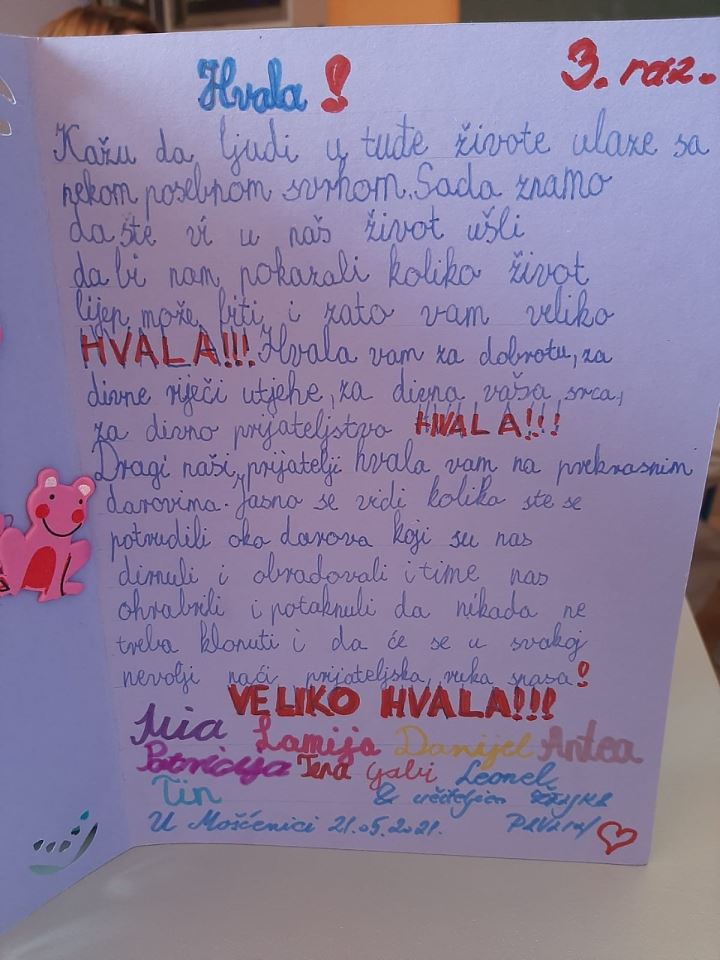 Hvala!
3. raz.
Kažu da ljudi u tuđe živote ulaze sa
nekom posebnom svrhom. Sada znamo
da ste vi u naš život ušli
da bi nam pokazali koliko život
lijep može biti i zato vam veliko
HVALA!!! Hvala vam za dobrotu, za
divne riječi utjehe, za divna vaša srca,
za divno prijateljstvo HVALA!!!
Dragi naši prijatelji hvala vam na prekrasnim
darovima. Jasno se vidi koliko ste se
potrudili oko darova koji su nas
dirnuli i obradovali i time nas
ohrabrili i potaknuli da nikada ne
treba klonuti i da će se u svakoj
nevolji naći prijateljska ruka spasa!
VELIKO HVALA!!!
Mia Lamija Danijel Antea
Patricija Tena Gabi Leonel
Tin & učiteljica
U Mošćenici 21.05.2021.